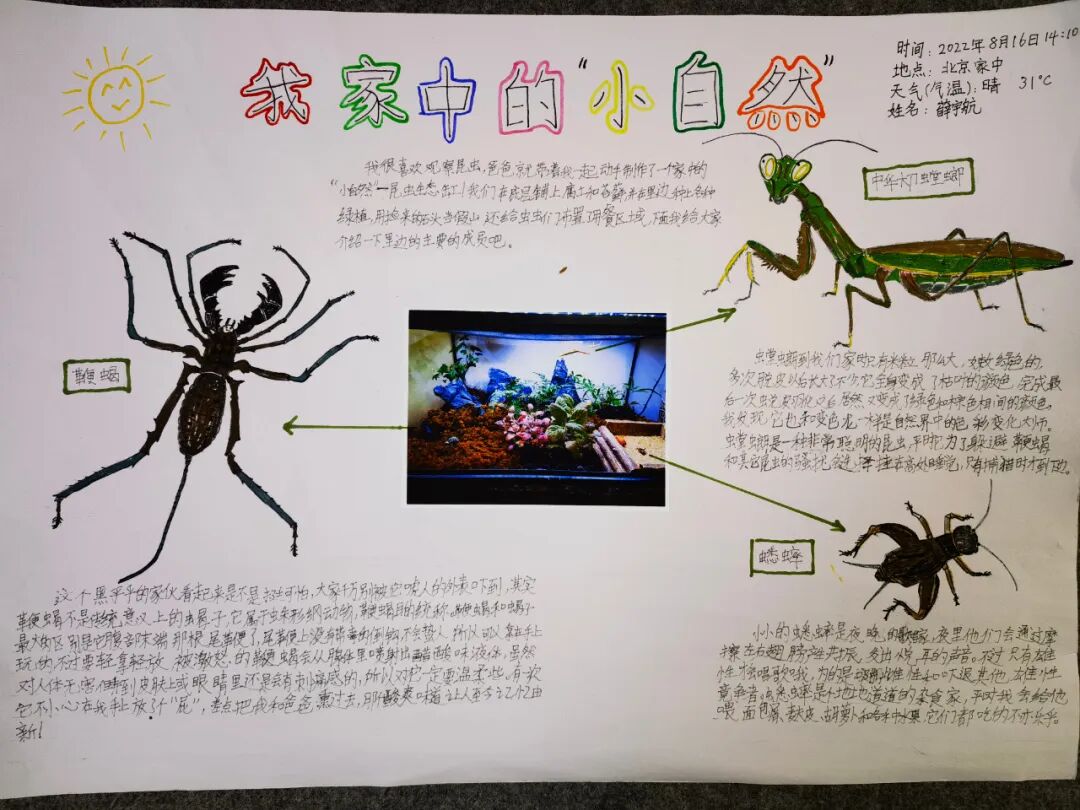 我家中的“小自然”
时间：2022年8月16日14:10
地点：北京家中
天气(气温)：晴 31°C
姓名：薛宇航
我很喜欢观察昆虫,爸爸就带着我一起动手制作了一个家中的
“小自然”—昆虫生态缸!我们在底层铺上腐土和苔藓,并在里边种上各种
绿植,用捡来的石头当假山,还给虫虫们布置了用餐区域,下面我给大家
介绍一下里边的主要的成员吧。
中华大刀螳螂
螳螂到我们家时只有米粒那么大,嫩绿色的,
多次脱皮以后长大了不少,它全身变成了枯叶的颜色,完成最
后一次蜕皮羽化之后居然又变成了绿色和棕色相间的颜色。
我发现它也和变色龙一样是自然界中的色彩变化大师。
螳螂是一种非常聪明的昆虫,平时为了躲避鞭蝎
和其它昆虫的骚扰,会选择挂在高处睡觉,只有捕猎时才到下边。
鞭蝎
蟋蟀
这个黑乎乎的家伙看起来是不是挺可怕,大家千万别被它唬人的外表吓到,其实
鞭蝎不是传统意义上的虫蝎子,它属于蛛形纲动物,鞭蝎目的统称,鞭蝎和蝎子
最大的区别是它腹部末端那根尾鞭了,尾鞭上没有带毒的倒钩,不会蜇人,所以可以拿在手上
玩,的不过要轻拿轻放,被激怒的鞭蝎会从腺体里喷射出醋酸味液体,虽然
对人体无害,但睛到皮肤上或眼睛里还是会有刺痛感的,所以对它一定要温柔些,有次
它不小心在我手上放了个“屁”,差点把我和爸爸熏过去,那酸爽味道让人至今记忆犹
新!
小小的蟋蟀是夜晚的歌唱家,夜里他们会通过摩
擦左右翅膀产生共振,发出悦耳的声音。不过只有雄
性才会唱歌哦,为的是吸引雌性和吓退其他雄性
竞争者。蟋蟀是地地道道的杂食家,平时我会给他
喂面包屑、麸皮、胡萝卜和各种水果,它们都吃的不亦乐乎。